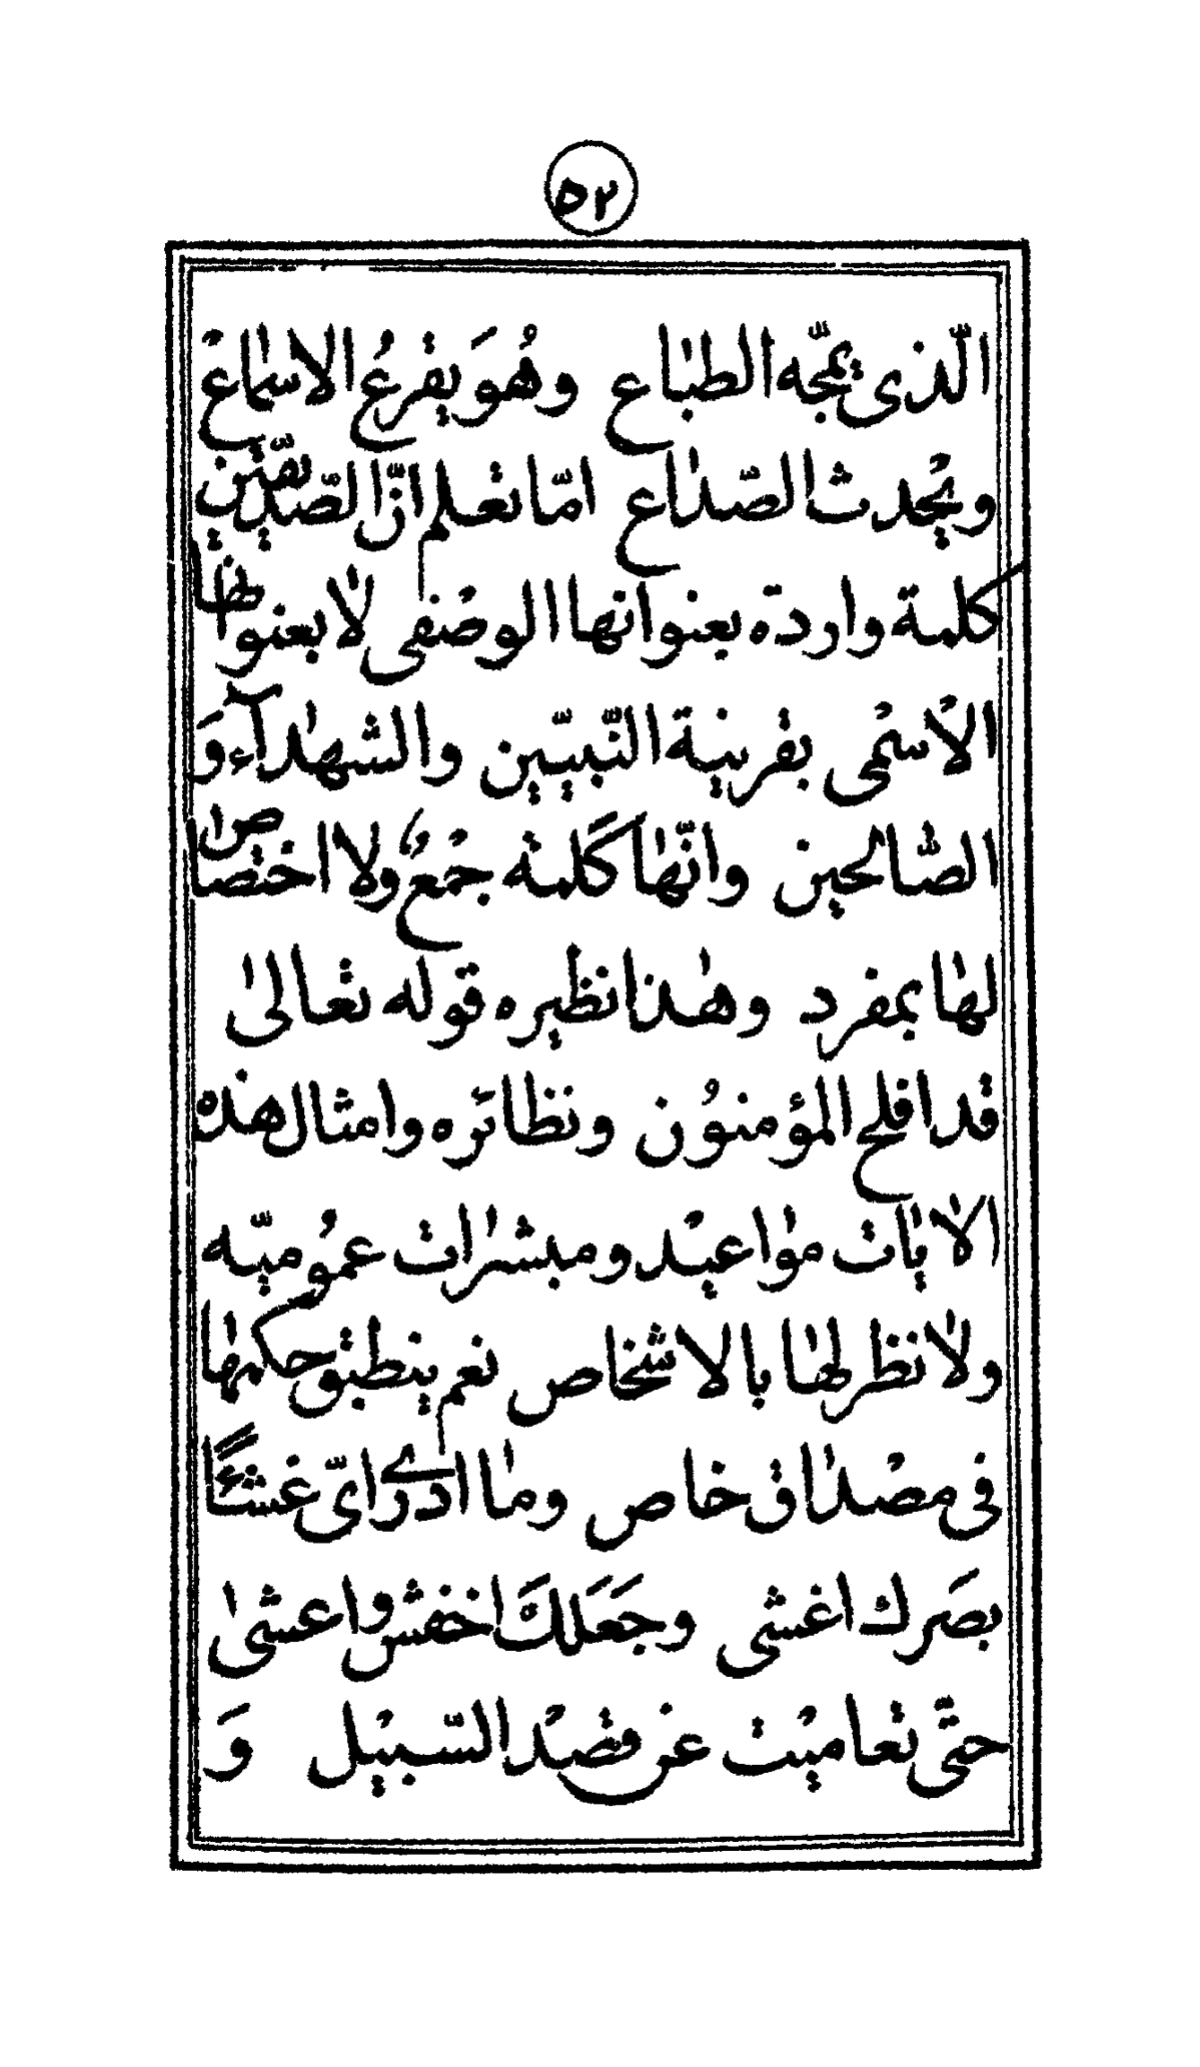 ٥٢
الّذى يمجّه الطباع وهُوَ يقرعُ الاسماعْ
ويُحدث الصّداع امّا تعلم انّ الصّدّيقين
كلمة واردة بعنوانها الوصْفى لا بعنوانها
الاسْمى بقرينة النّبيّين والشهداۤء وَ
الصّالحين وانّها كَلمة جمْعُ ولا اختصاص
لها بمفرد وهذا نظيره قوله تعالى
قد افلح المؤمنوُن ونظائره وامثال هذه
الايات مواعيْد ومبشرات عمُوميّه
ولا نظر لها بالاشخاص نعم ينطبق حكمها
فى مصْداق خاص وما ادرى اىّ غشئًا
بصَرك اغشى وجَعَلكَ اخفش واعشى
حتّى تعاميْت عن قصْد السّبيْل وَ